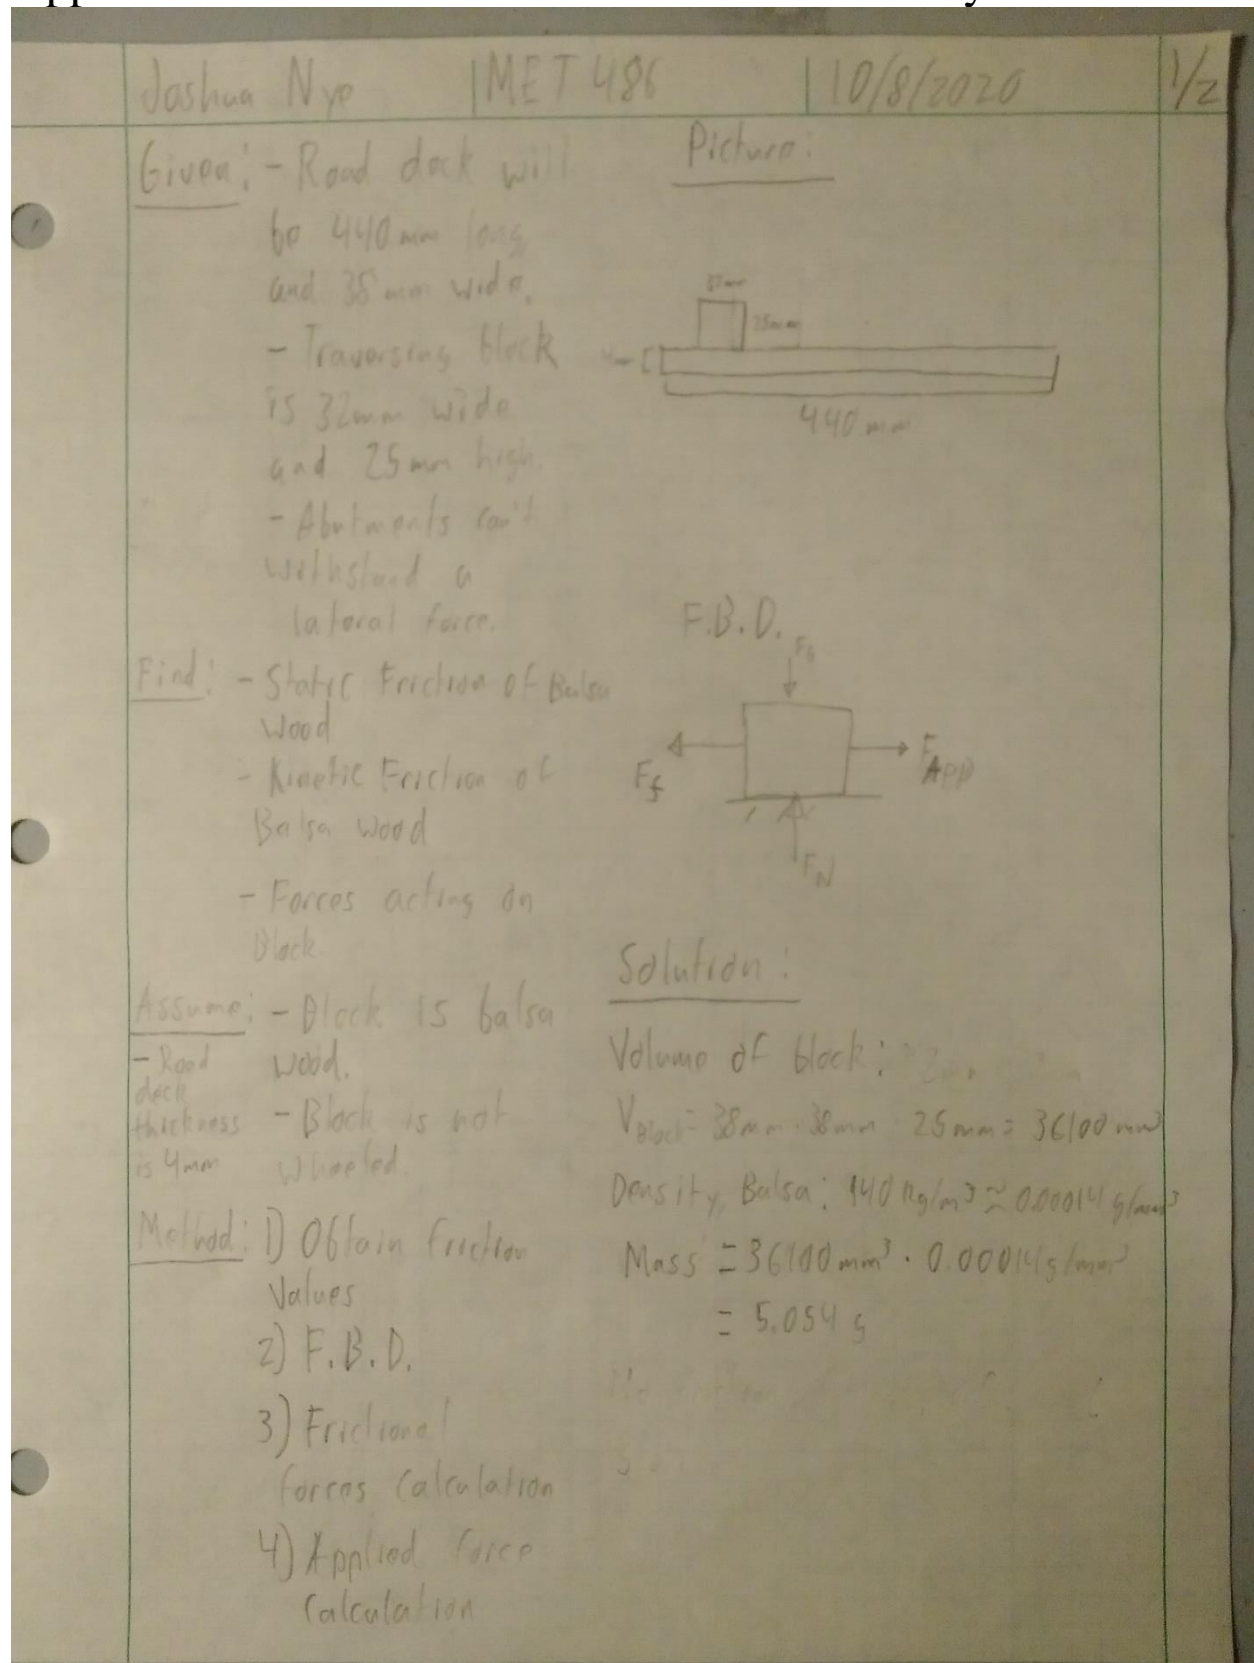 Joshua Nye | MET 486 | 10/8/2020 1/2
Given: - Road deck will
be 440mm long
and 38mm wide.
- Traversing block
is 32mm wide
and 25mm high.
- Abutments can't
withstand a
lateral force.
Find: - Static Friction of Balsa
Wood
- Kinetic Friction of
Balsa Wood
- Forces acting on
Block.
Assume: - Block is balsa
wood.
- Road
deck
thickness
is 4mm
- Block is not
wheeled.
Method: 1) Obtain friction
Values
2) F.B.D.
3) Frictional
forces calculation
4) Applied force
Calculation
Picture:
25mm
440mm
F.B.D.
Ff
FApp
FN
Solution:
Volume of block:
VBlock = 38mm · 38mm · 25mm = 36100 mm³
Density, Balsa: 140 kg/m³ ≈ 0.00014 g/mm³
Mass = 36100 mm³ · 0.00014 g/mm³
= 5.054 g